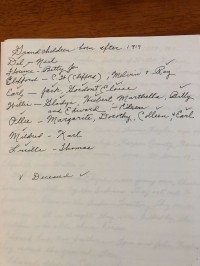 Grandchildren born after 1919
Neil
Florence - Betty Jo
Clifford - C. H. (Clifford), Melvin & Ray
Carl - Jack, Gordon, Elaine
Willie - Gladys, Hubert, Marthella, Billy
and Edward - Eileen
Ollie - Margarite, Dorothy, Colleen, & Earl
Mildred - Karl
Lucille - Thomas
Deceased